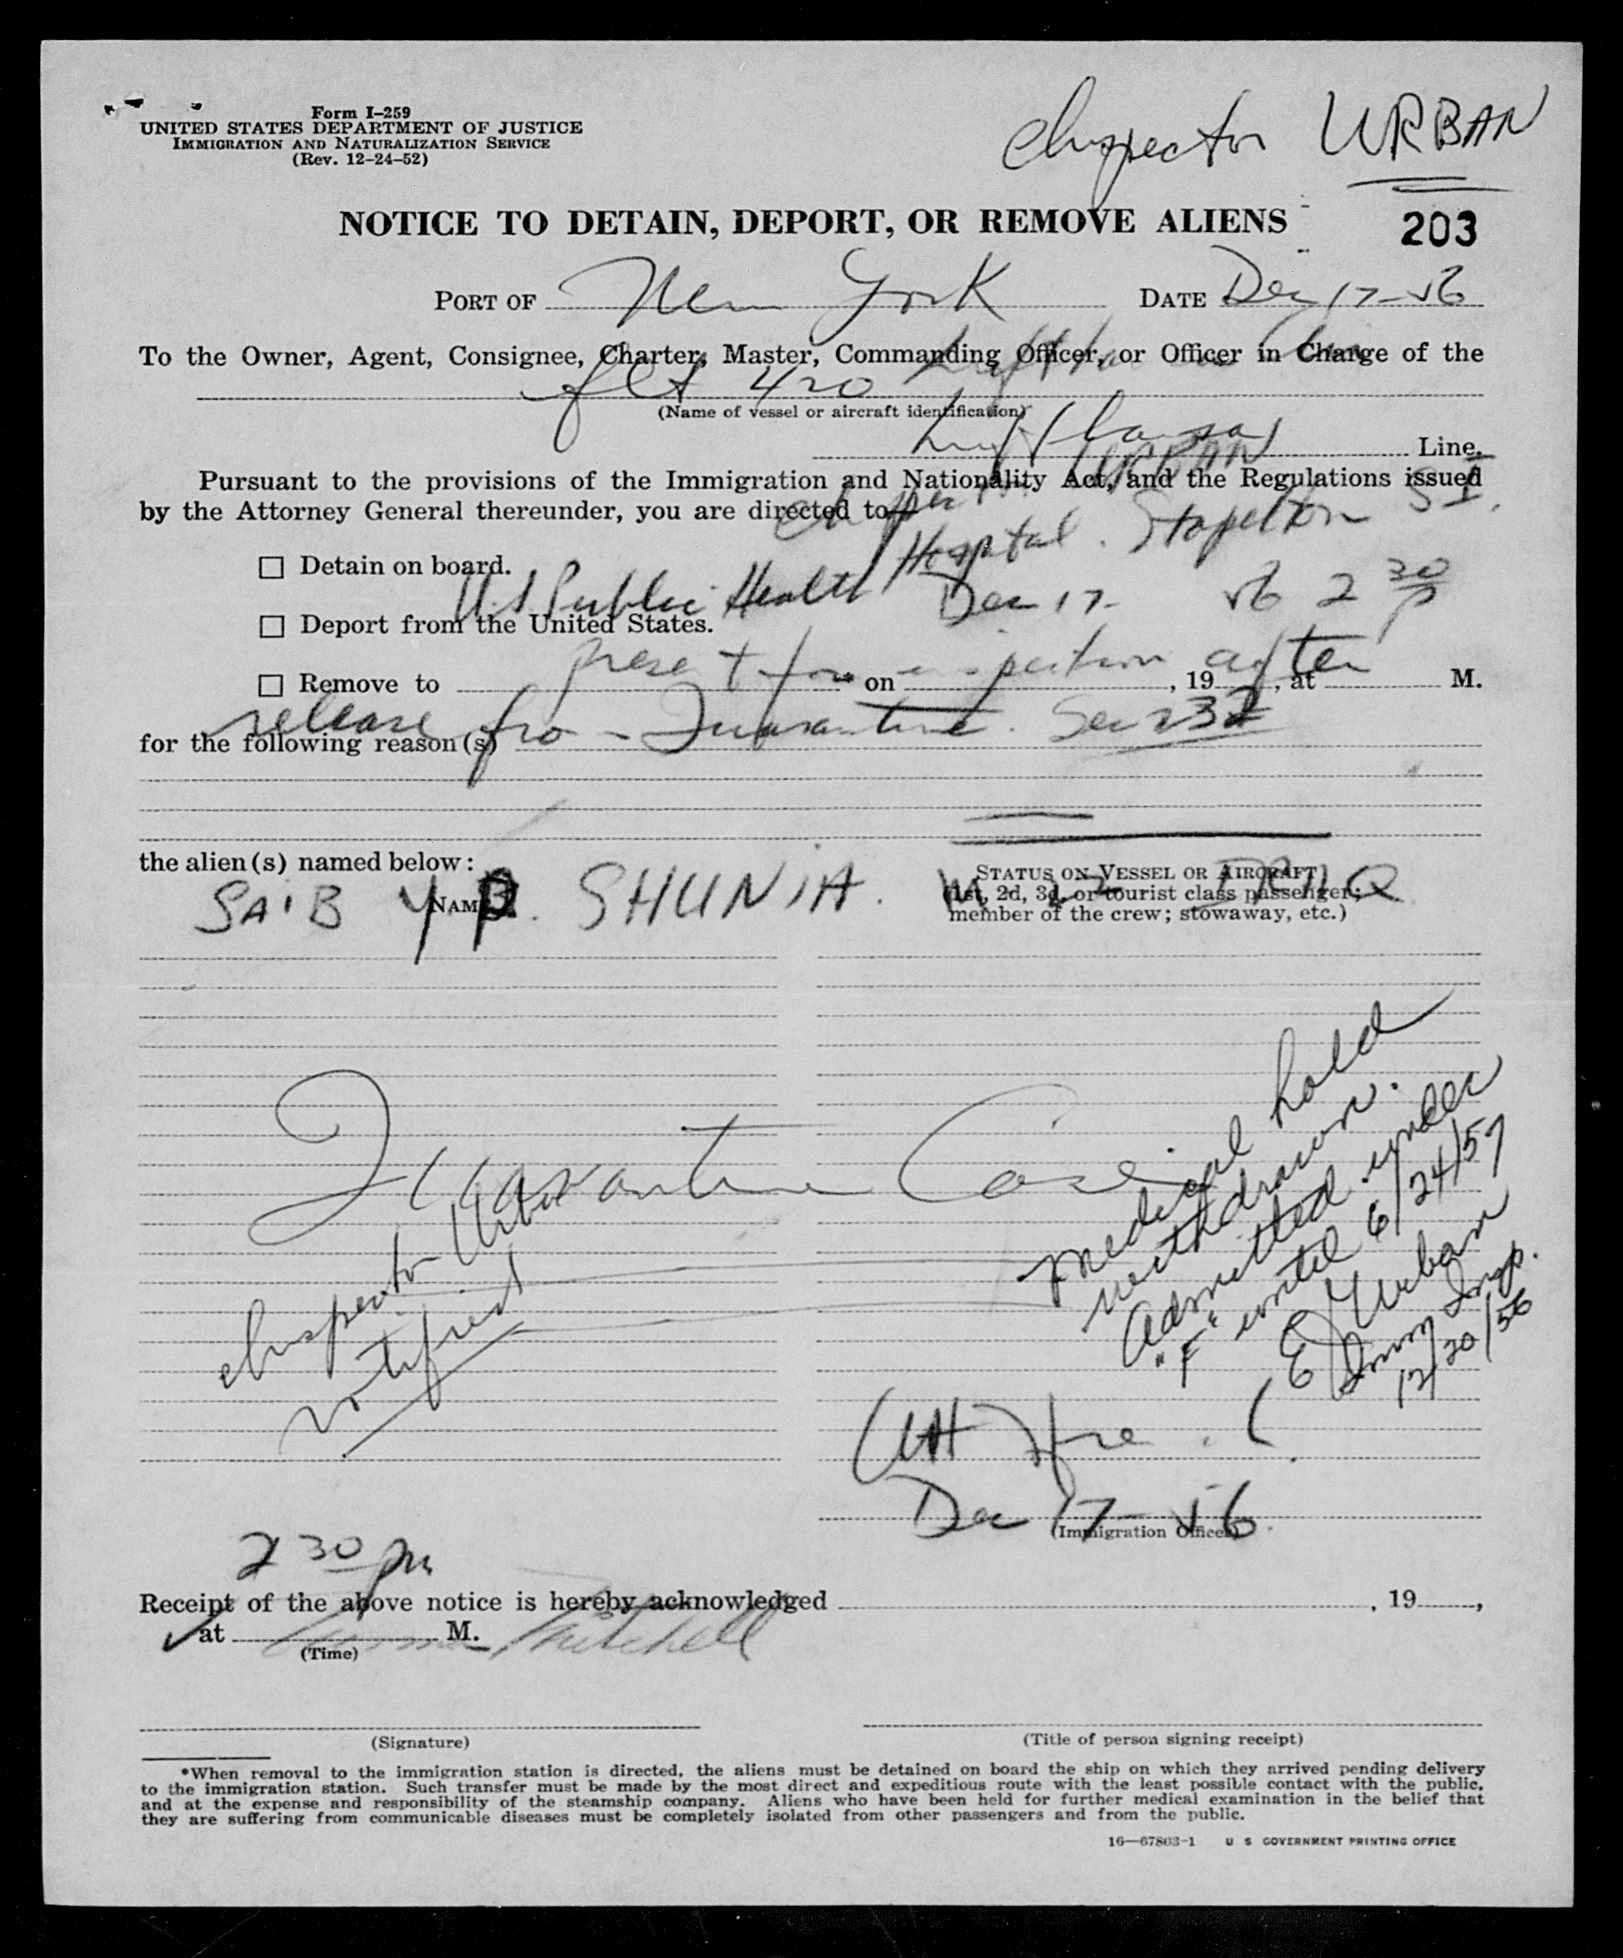 Form I-259
UNITED STATES DEPARTMENT OF JUSTICE
IMMIGRATION AND NATURALIZATION SERVICE
(Rev. 12-24-52)
Inspector URBAN
NOTICE TO DETAIN, DEPORT, OR REMOVE ALIENS
203
PORT OF New York DATE Dec 17-56
To the Owner, Agent, Consignee, Charter, Master, Commanding Officer, or Officer in Charge of the
flt 420 Lufthansa
(Name of vessel or aircraft identification)
Lufthansa Line.
Pursuant to the provisions of the Immigration and Nationality Act, and the Regulations issued
by the Attorney General thereunder, you are directed to
Inspector URBAN
Hospital. Stapelton S I.
Detain on board.
U.S Public Health
Dec 17- 56 2 30 P
Deport from the United States.
present for inspection after
Remove to * on , 19 , at M.
release from Quarantine. Sec 232
for the following reason(s)
the alien(s) named below:
STATUS ON VESSEL OR AIRCRAFT
(1st, 2d, 3d, or tourist class passenger;
member of the crew; stowaway, etc.)
NAME
SAIB SHUNIA. IRAQ
Quarantine Case
Inspector Urban
notified
Medical hold
withdrawn.
Admitted under
"F" until 6/24/57
E Urban
Imm Insp.
12/20/56
Dec 17-56
(Immigration Officer)
2 30 pm
Receipt of the above notice is hereby acknowledged , 19 ,
at M.
Mitchell
(Time)
(Signature)
(Title of person signing receipt)
*When removal to the immigration station is directed, the aliens must be detained on board the ship on which they arrived pending delivery
to the immigration station. Such transfer must be made by the most direct and expeditious route with the least possible contact with the public,
and at the expense and responsibility of the steamship company. Aliens who have been held for further medical examination in the belief that
they are suffering from communicable diseases must be completely isolated from other passengers and from the public.
16—67803-1 U S GOVERNMENT PRINTING OFFICE